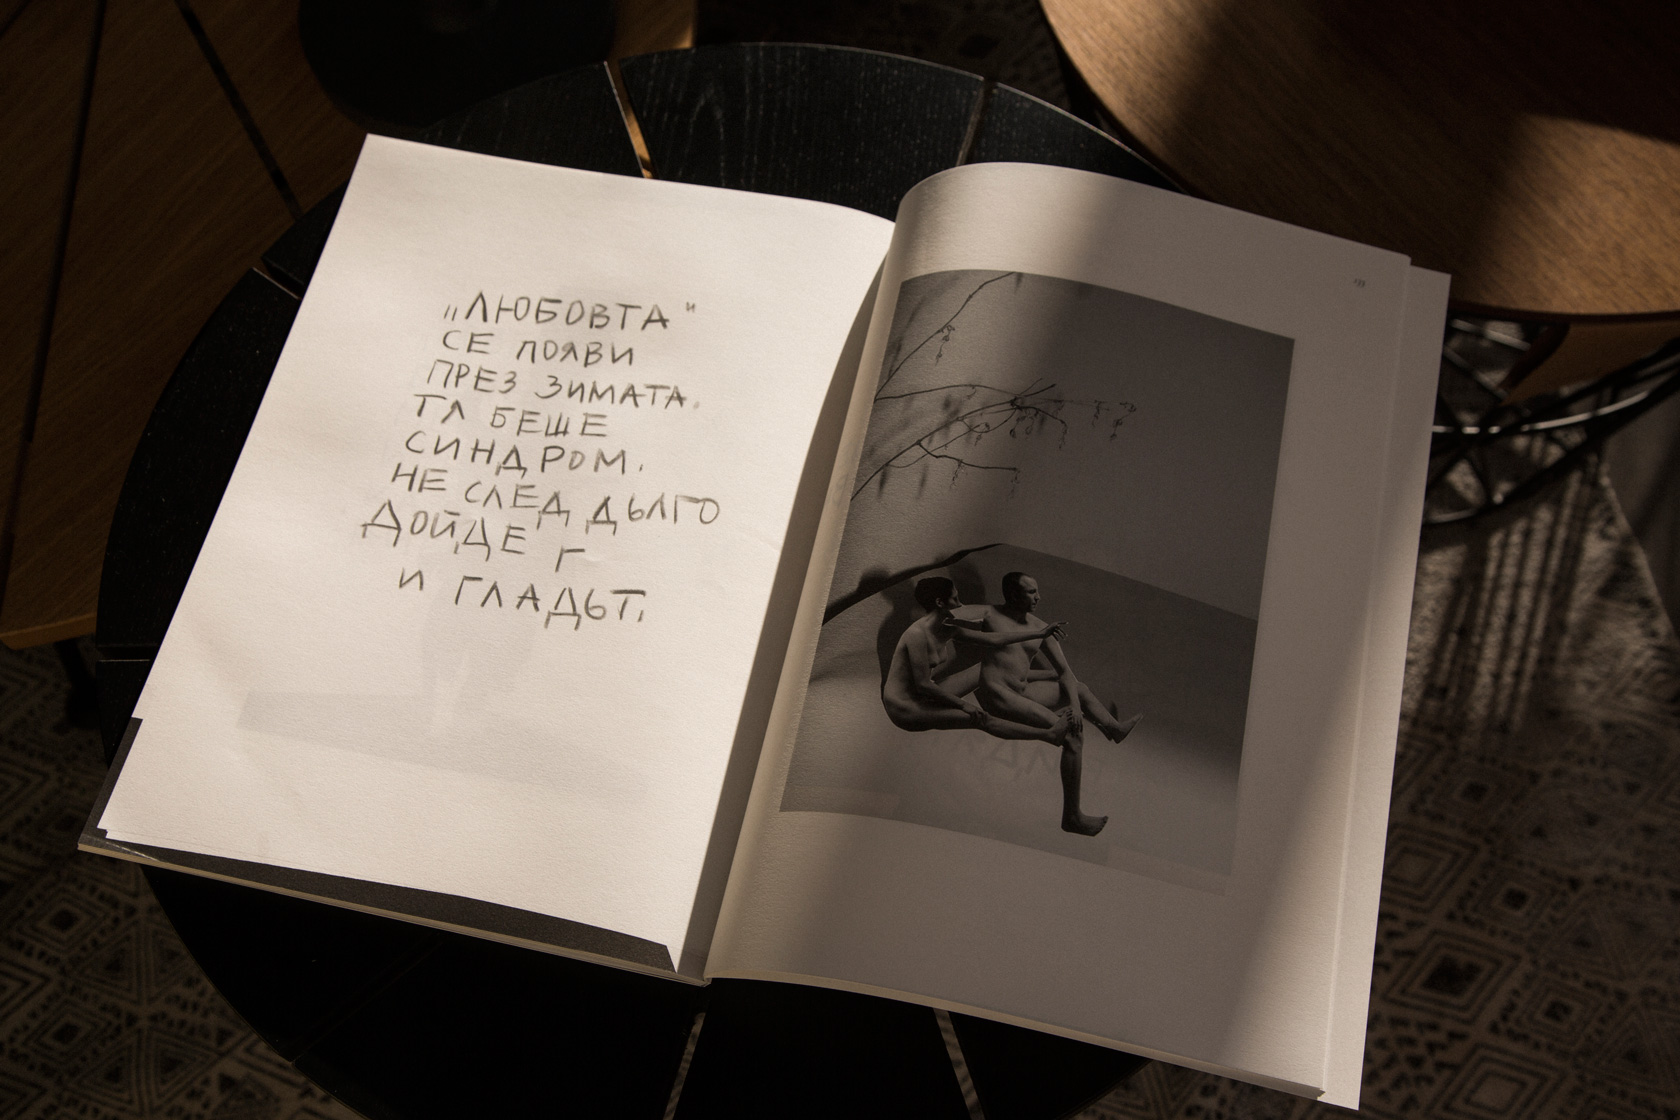 „ЛЮБОВТА“
СЕ ПОЯВИ
ПРЕЗ ЗИМАТА.
ТЯ БЕШЕ
СИНДРОМ.
НЕ СЛЕД ДЪЛГО
ДОЙДЕ Г
И ГЛАДЪТ.